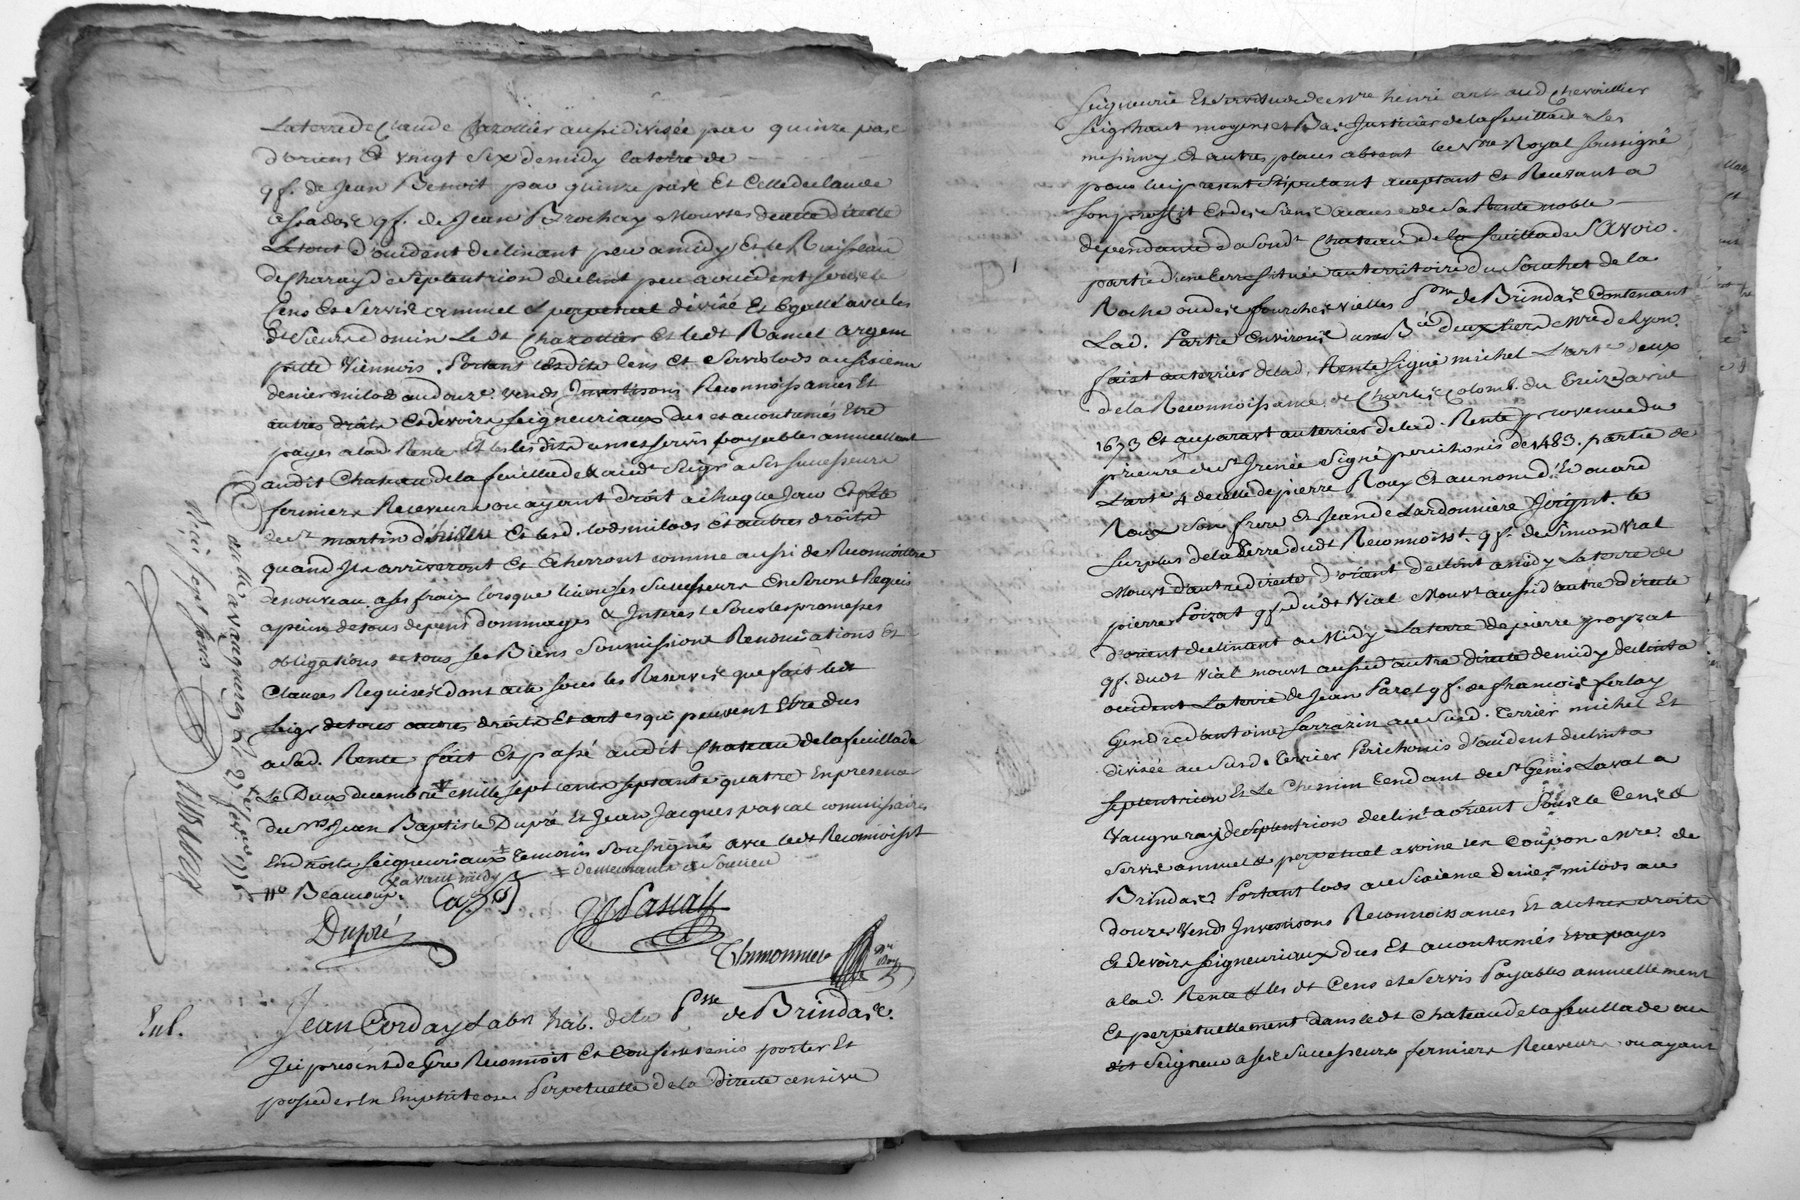 La terre de Claude Chazottier aussi divisée par quinze pare
d'orient Et vingt Six de midy la terre de
qf. de Jean Benoit par quinze pare Et Celle de Claude
qf. de Jean Brochay Mouvtes de directe
Le tout d'occident declinant peu a midy Et le Ruisseau
de Charay de septentrion declint peu a occident sous le
Cens Et Servis annuel & perpetuel divisé Et Egallé avec les
Le dt Chazottier et ledt Ramel argent
Viennois. Portant lesdits Cens Et Servis lods au sixieme
denier milods au douze. vends Investisons Reconnoissances Et
autres droits Et devoirs seigneuriaux dus et accoutumés Etre
payes a lad Rente Et lesdits cens et servis payables annuellemt
audit Chateau de la feuillade & audt Seigr a Ses successeurs
fermiers Receveurs ou ayant droit a chaque Jour Et fete
de st martin d'hiver Et lesd. lods milods Et autres droits
quand Ils arriveront Et Echerront comme aussi de Reconnoitre
de nouveau a ses fraix lorsque luy ou ses successeurs En seront Requis
a peine de tous depens dommages & Interest Sous les promesses
obligations de tous ses Biens Soumissions Renonciations Et
Clauses Requises dont acte sous les Reserves que fait ledt
Seigr de tous autres droits Et art es qui peuvent Etre dus
a Sad. Rente fait Et passé audit Chateau de la feuillade
Le Deux decembre Mille sept cents septante quatre En presence
de Mrs Jean Baptiste Dupré Et Jean Jacques pascal commissaires
En droits seigneuriaux temoins soussignés avec ledt Reconnoisst
avant midy ‡ demeurants a Soucieu
Beaumoux.
Dupré
JJ Pascal
Con.lé a vaugneray le 27 fevr. 1775
Reçu sept sous
Jean Corday Labr hab. de la Psse de Brindas.
Ici present de Gré Reconnoit Et Confesse tenir porter Et
posseder En Emphiteose Perpetuelle de la directe censive
Seigneurie Et Servitude de Mre henri artaud Chevallier
Seigr haut moyen et Bas Justicier de la feuillade Les
messimy Et autres places absent le Nre Royal soussigné
pour luy present stipulant acceptant Et Recevant a
son proffit Et des siens a cause de Sa Rente noble
dependante de Sondt Chateau de la feuillade SAvoir.
partie d'une terre située au territoire du Souchet de la
Roche ou des fourches vielles Psse de Brindas Contenant
Lad. Partie Environ une Bée deux tiers Mre de Lyon.
faist au terrier de lad. Rente signé michel L'art. deux
de la Reconnoissance de Charles Colomb. du treize avril
1673 Et auparavt au terrier de lad. Rente provenue du
prieuré de St Irenée Signé perichonis de 1483. partie de
L'arte 4 de celle de pierre Roux Et au nom d'Edouard
Roux Son frere Et Jean de Lardonniere Joignt. le
surplus de la Terre dudt Reconnoisst. qf. de Simon Vial
Mouvt d'autre directe d'orient declint a midy La terre de
pierre Poizat qf. dudt Vial Mouvt aussi d'autre directe
d'orient declinant a Midy La terre de pierre poyzat
qf. dudt Vial mouvt aussi d'autre directe de midy declint a
occident La terre de Jean Paret qf. de francois ferlay
Gendre d'antoine Sarrazin au Susd. Terrier michel Et
divisée au Susd. terrier Perichonis d'occident declint a
septentrion Et Le Chemin tendant de St Genis Laval a
Vaugneray de septentrion declint a orient Sous le Cens &
Servis annuel & perpetuel avoine un Coupon Mre. de
Brindas Portant lods au sixieme denier milods au
douze Vends Investisons Reconnoissances Et autres droits
Et devoirs seigneuriaux dus Et accoutumés Etre payes
a lad. Rente & les dt Cens et Servis Payables annuellement
Et perpetuellement dans ledt Chateau de la feuillade au
dit Seigneur a ses Successeurs fermiers Receveurs ou ayant